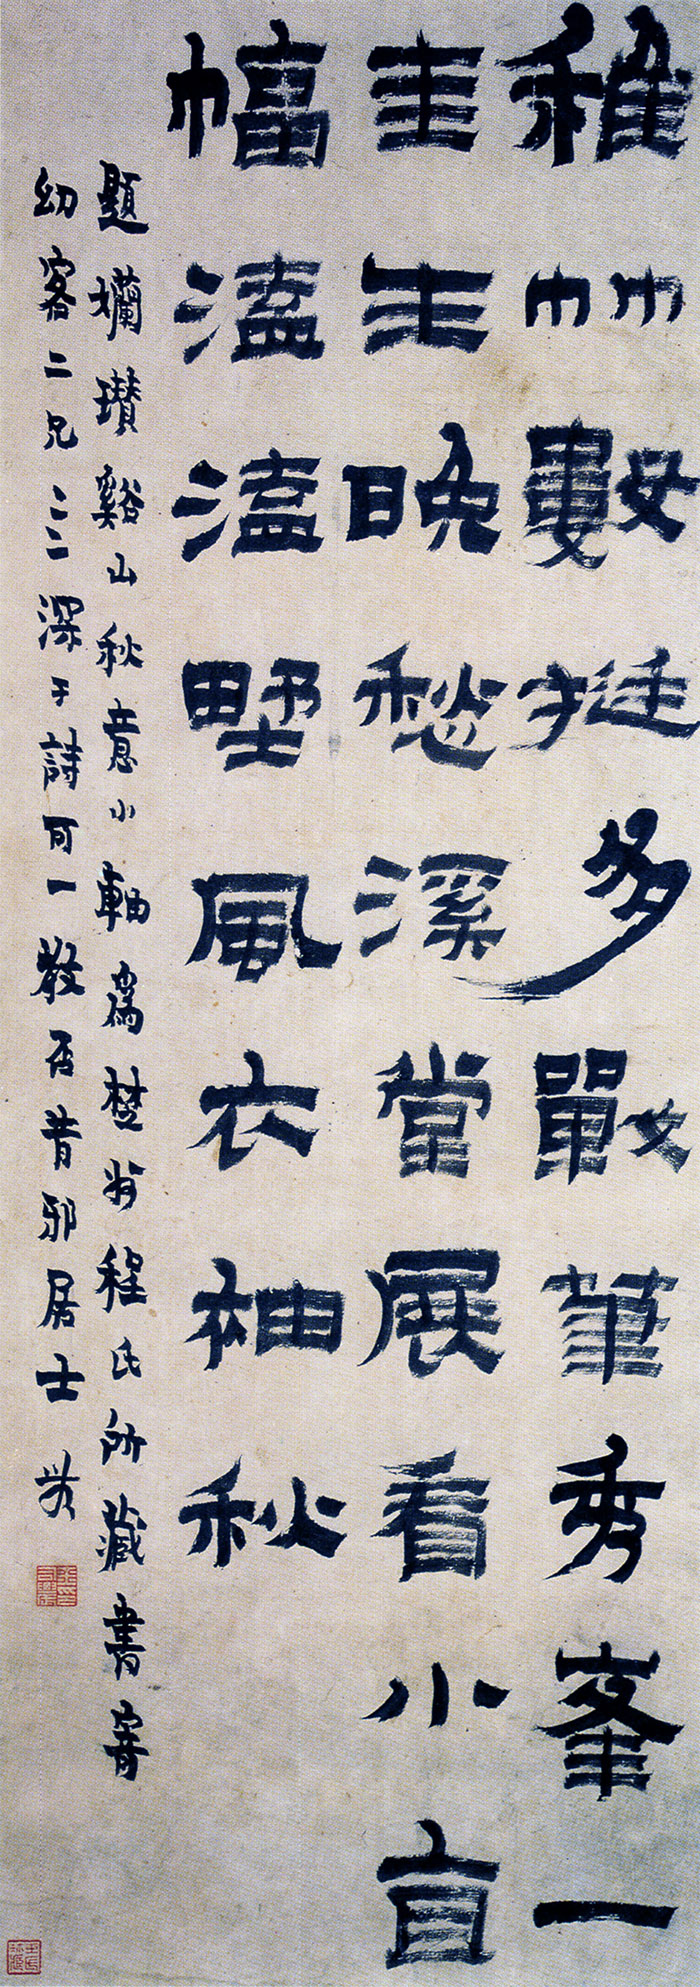 稚竹數挺多戰筆秀峯一
圭生晚愁溪堂展看小直
幅溘溘野風衣袖秋
題嬾瓚谿山秋意小軸爲楚翁程氏所藏書寄
幼客二兄〻〻深于詩可一教否昔邪居士